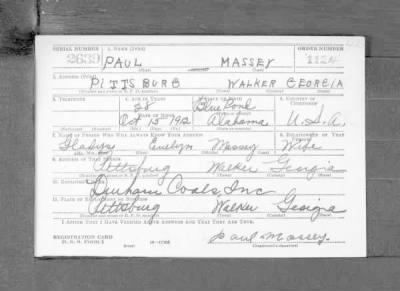 SERIAL NUMBER 1. NAME (Print) ORDER NUMBER
2639 PAUL MASSEY 1124
(First) (Middle) (Last)
2. ADDRESS (Print)
PITTSBURG WALKER GEORGIA
3. TELEPHONE 4. AGE IN YEARS 5. PLACE OF BIRTH 6. COUNTRY OF CITIZENSHIP
28
DATE OF BIRTH
Oct 15 1912 Alabama U.S.A.
7. NAME OF PERSON WHO WILL ALWAYS KNOW YOUR ADDRESS 8. RELATIONSHIP OF THAT PERSON
Gladys Evelyn Massey Wife
9. ADDRESS OF THAT PERSON
Pittsburg Walker Georgia
10. EMPLOYER'S NAME
Durham Coals, Inc
11. PLACE OF EMPLOYMENT OR BUSINESS
Pittsburg Walker Georgia
I AFFIRM THAT I HAVE VERIFIED ABOVE ANSWERS AND THAT THEY ARE TRUE.
REGISTRATION CARD
D. S. S. FORM 1 Paul Massey.
(Registrant's signature)